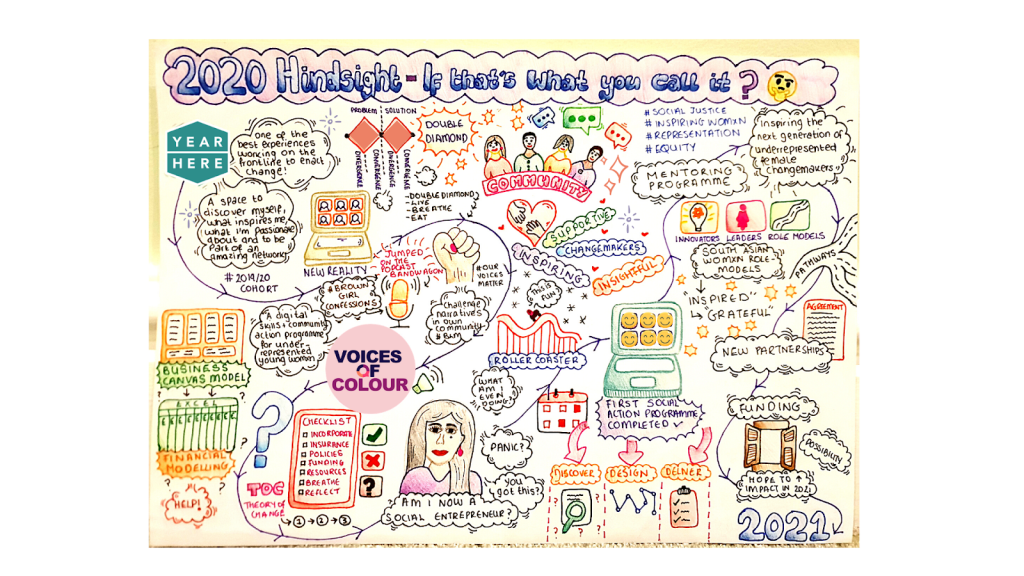 2020 Hindsight - If that's what you call it?
YEAR
HERE
one of the
best experiences
working on the
frontline to enact
change!
PROBLEM
SOLUTION
DIVERGENCE
CONVERGENCE
DIVERGENCE
CONVERGENCE
DOUBLE
DIAMOND
-DOUBLE DIAMOND
-LIVE
-BREATHE
-EAT
COMMUNITY
# SOCIAL JUSTICE
# INSPIRING WOMXN
# REPRESENTATION
# EQUITY
MENTORING
PROGRAMME
inspiring the
next generation of
underrepresented
female
changemakers
A space to
discover myself,
what inspires me,
what I'm passionate
about and to be
part of an
amazing network
# 2019/20
COHORT
NEW REALITY
JUMPED
ON THE
PODCAST
BANDWAGON
#OUR
VOICES
MATTER
SUPPORTIVE
CHANGEMAKERS
INSPIRING
INSIGHTFUL
INNOVATORS
LEADERS
ROLE MODELS
SOUTH ASIAN
WOMXN ROLE
MODELS
PATHWAYS
"INSPIRED"
"GRATEFUL"
AGREEMENT
NEW PARTNERSHIPS
# BROWN
GIRL
CONFESSIONS
Challenge
narratives in
own
community
This is
FUN?
ROLLER COASTER
A digital
skills & community
action programme
for under-
represented
young women
VOICES
OF
COLOUR
BUSINESS
CANVAS MODEL
EXCEL
£ £ £ £ £ £ £ £
FINANCIAL
MODELLING
HELP!
?
CHECKLIST
INCORPORATE
INSURANCE
POLICIES
FUNDING
RESOURCES
BREATHE
REFLECT
?
TOC
THEORY OF
CHANGE
1 → 2 → 3
WHAT
AM I
EVEN
DOING?
PANIC?
you
got this?
AM I NOW A
SOCIAL ENTREPRENEUR?
FIRST SOCIAL
ACTION PROGRAMME
COMPLETED ✓
DISCOVER
DESIGN
DELIVER
FUNDING
POSSIBILITY
HOPE TO ↑
IMPACT IN 2021
2021